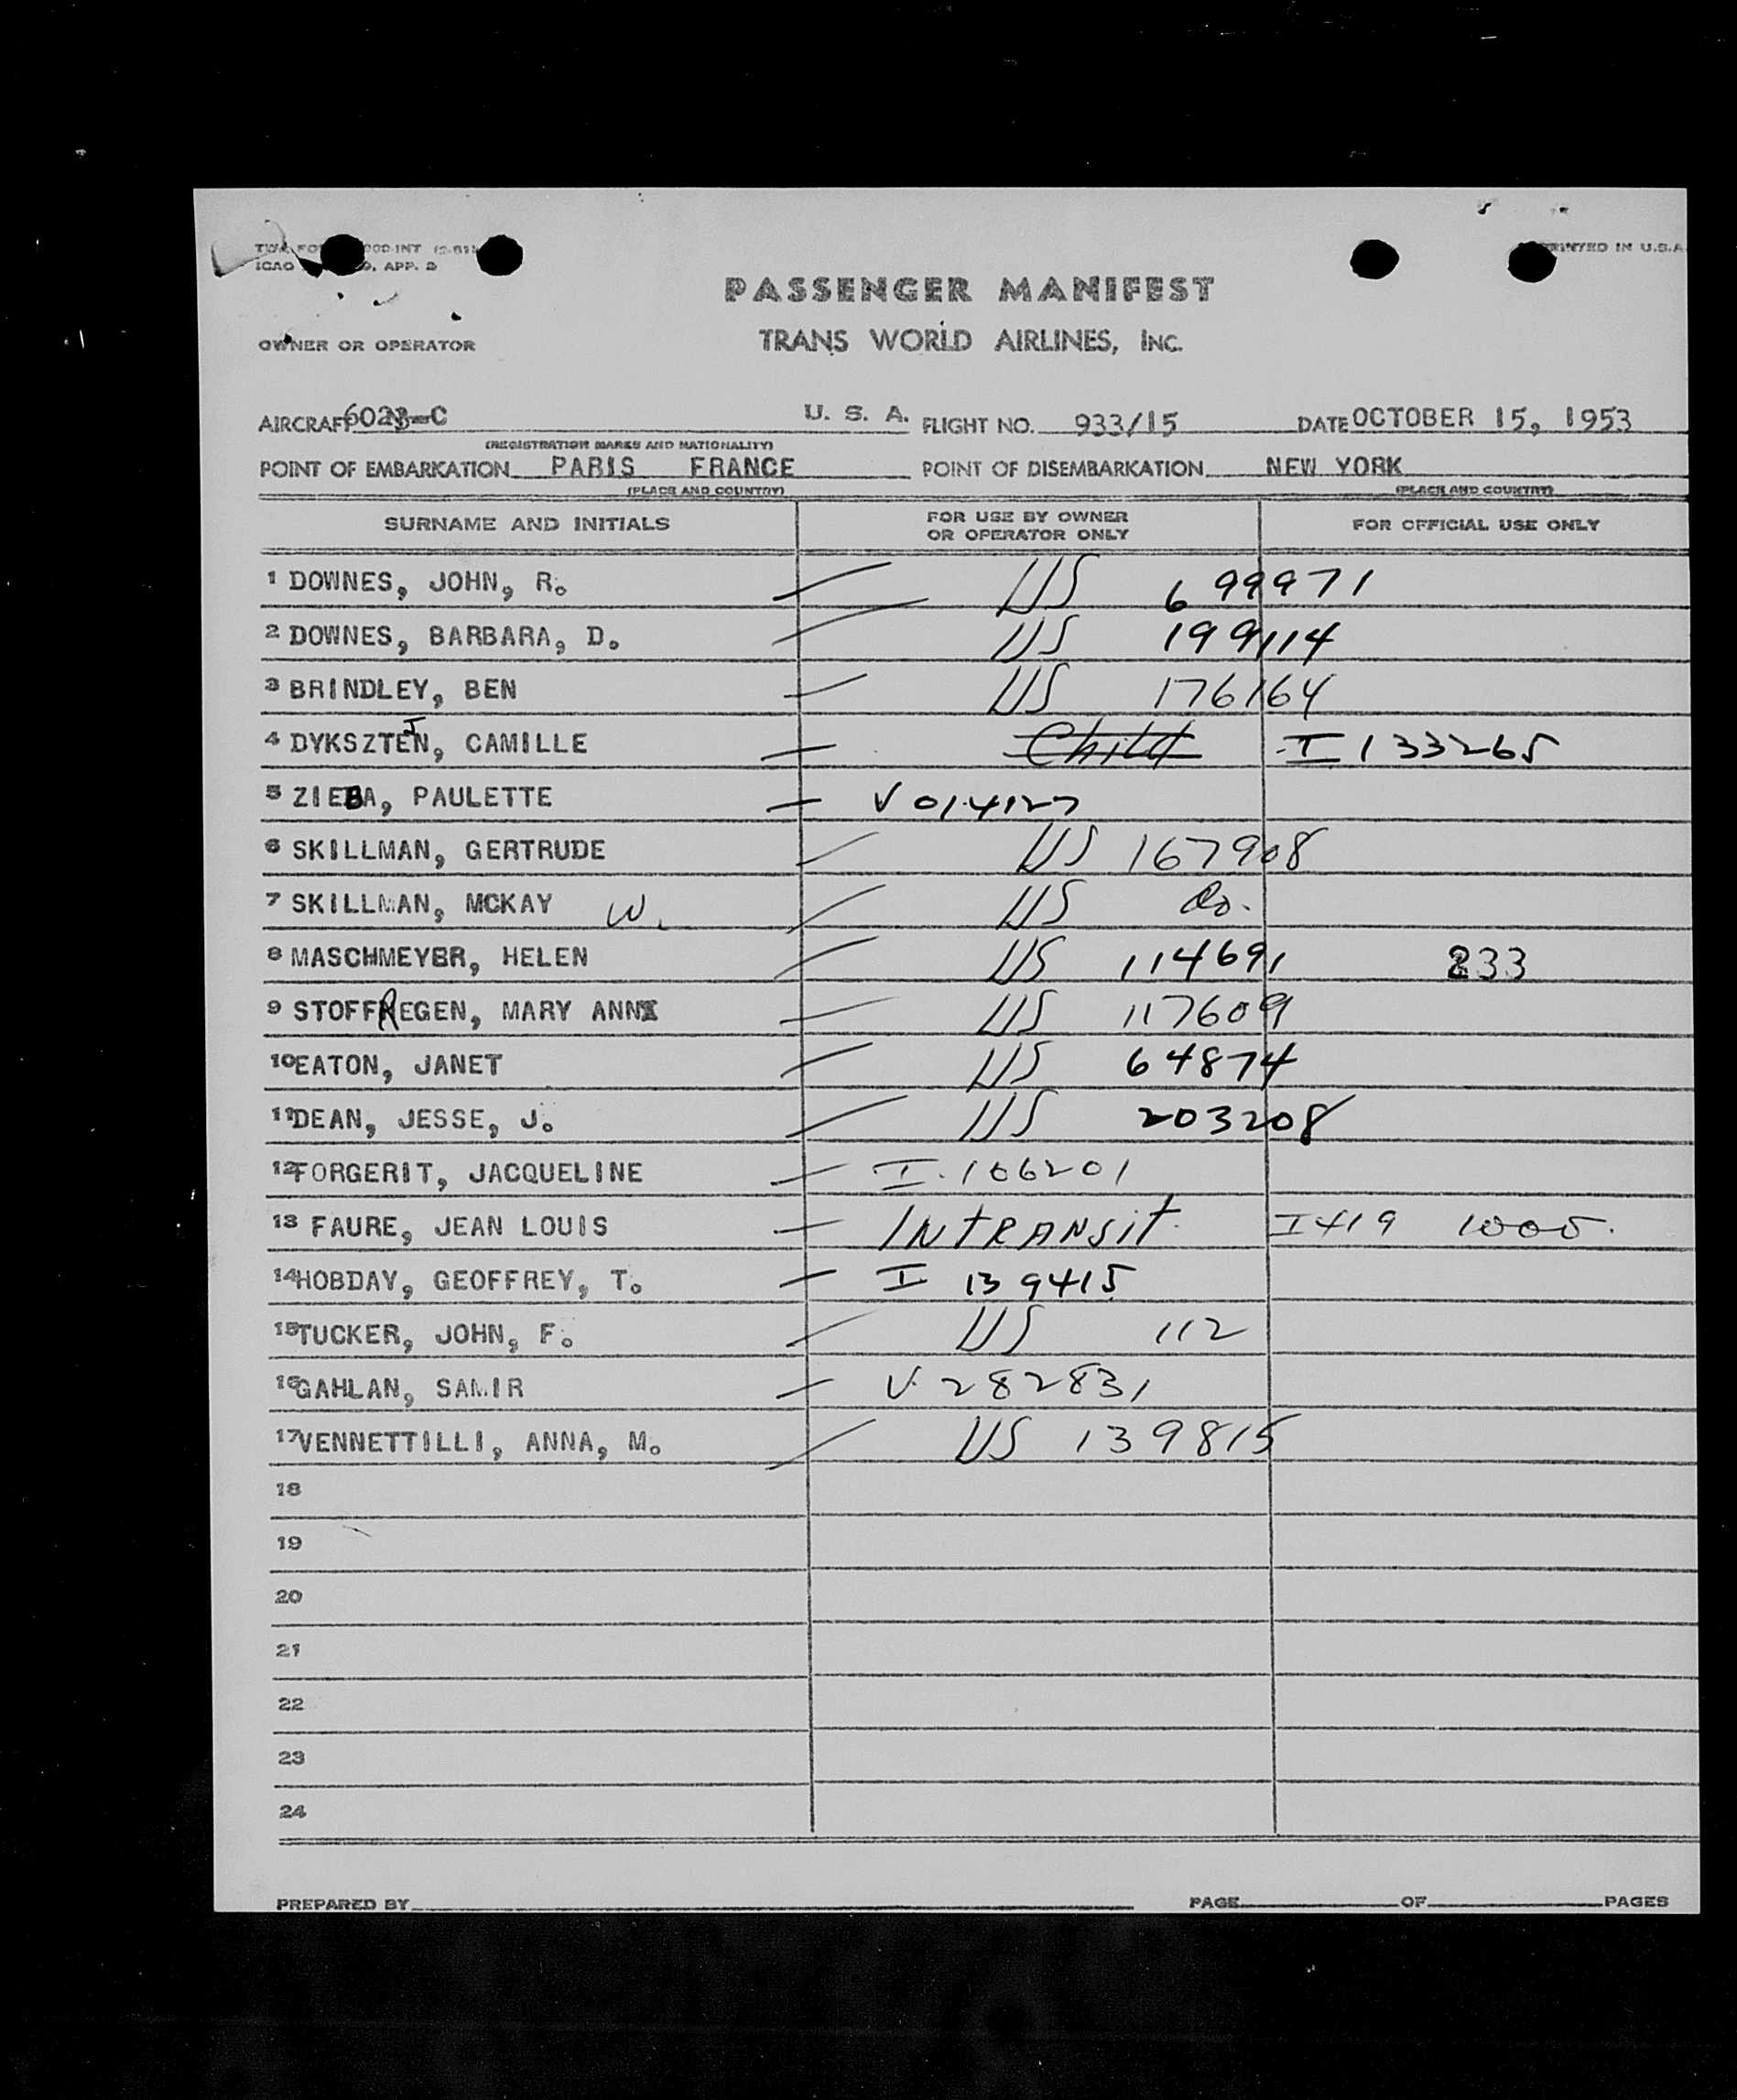 ICAO APP. 2
PRINTED IN U.S.A
PASSENGER MANIFEST
OWNER OR OPERATOR TRANS WORLD AIRLINES, INC.
AIRCRAFT U. S. A. FLIGHT NO. 933/15 DATE OCTOBER 15, 1953
(REGISTRATION MARKS AND NATIONALITY)
POINT OF EMBARKATION PARIS FRANCE POINT OF DISEMBARKATION NEW YORK
(PLACE AND COUNTRY) (PLACE AND COUNTRY)
SURNAME AND INITIALS FOR USE BY OWNER OR OPERATOR ONLY FOR OFFICIAL USE ONLY
1 DOWNES, JOHN, R. US 699971
2 DOWNES, BARBARA, D. US 199114
3 BRINDLEY, BEN US 176164
4 DYKSZTEJN, CAMILLE Child I 133265
5 ZIEBA, PAULETTE V 014127
6 SKILLMAN, GERTRUDE US 167908
7 SKILLMAN, MCKAY W. US do.
8 MASCHMEYER, HELEN US 114691 233
9 STOFFREGEN, MARY ANN US 117609
10 EATON, JANET US 64874
11 DEAN, JESSE, J. US 203208
12 FORGERIT, JACQUELINE I. 106201
13 FAURE, JEAN LOUIS INTRANSIT I 419 1000.
14 HOBDAY, GEOFFREY, T. I 139415
15 TUCKER, JOHN, F. US 112
16 GAHLAN, SAMIR V. 282831
17 VENNETTILLI, ANNA, M. US 139815
18
19
20
21
22
23
24
PREPARED BY PAGE OF PAGES